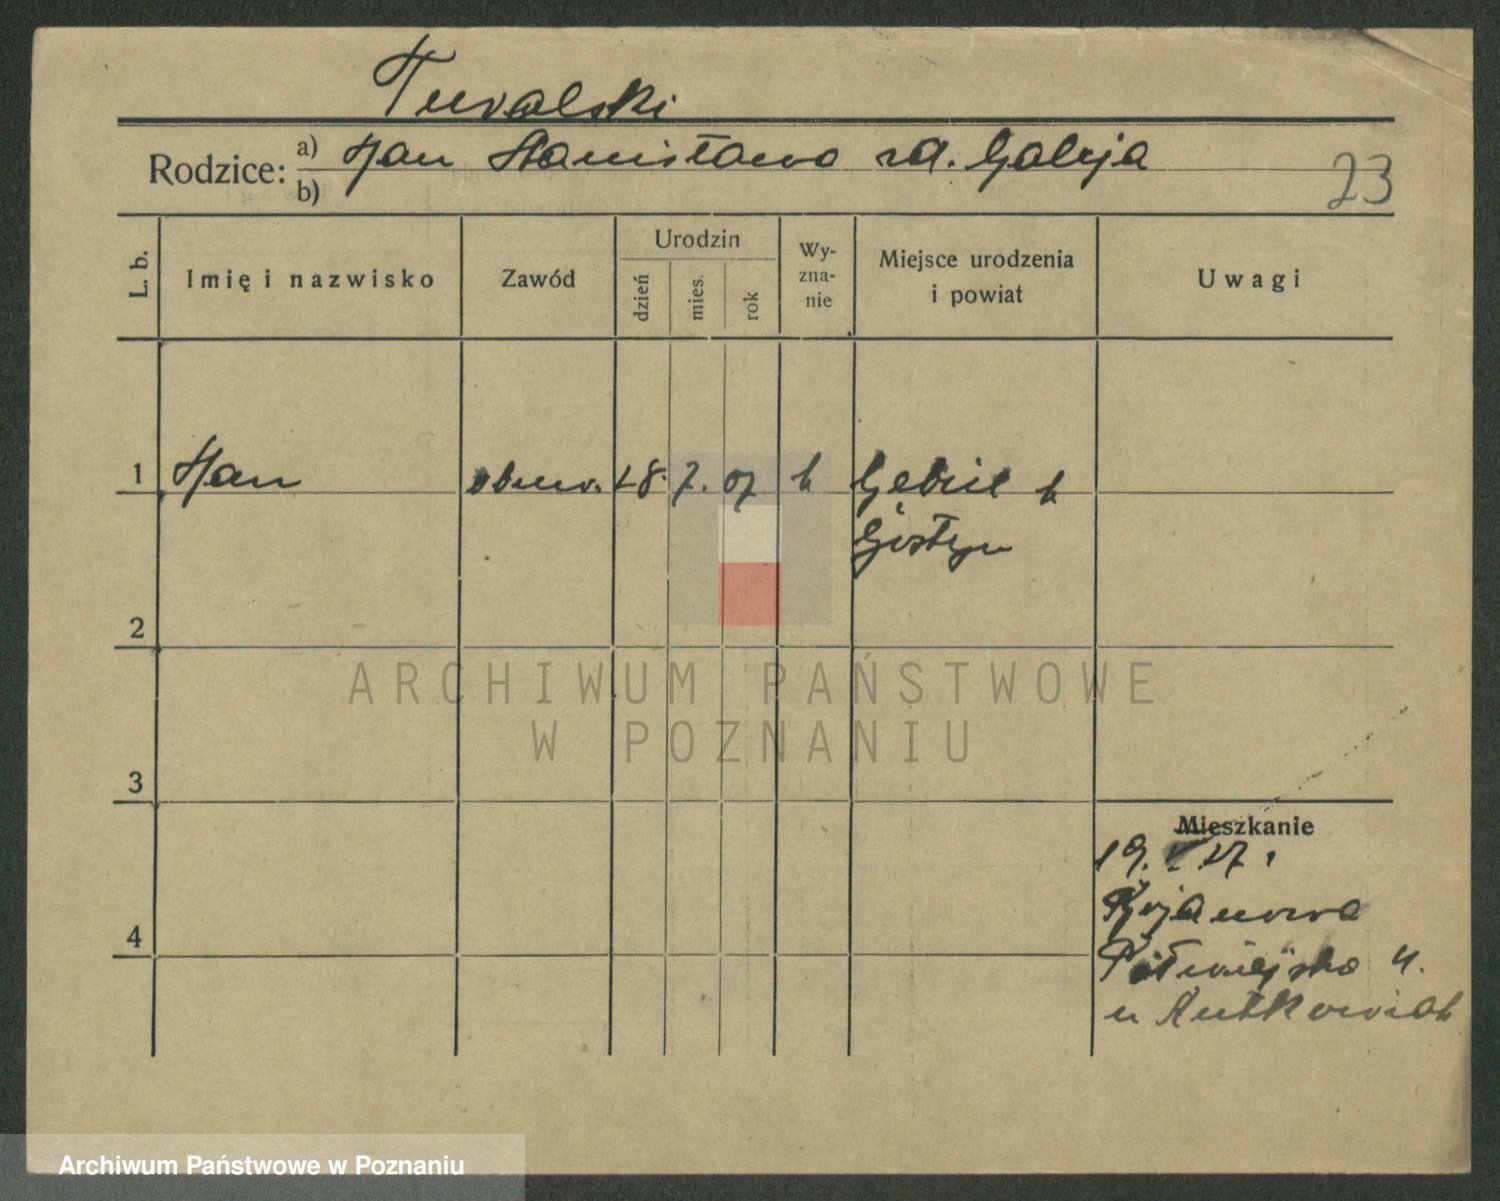 Tuvalski
Rodzice: a) Jan Stanisława zd. Galeja
b)
23
L. b.
Imię i nazwisko
Zawód
Urodzin
dzień
mies.
rok
Wy-
zna-
nie
Miejsce urodzenia
i powiat
Uwagi
1 Jan 18. 7. 07 k
Gostyn
2
ARCHIWUM PAŃSTWOWE
W POZNANIU
3
Mieszkanie
19.
4
Półwiejska 4.
u
Archiwum Państwowe w Poznaniu